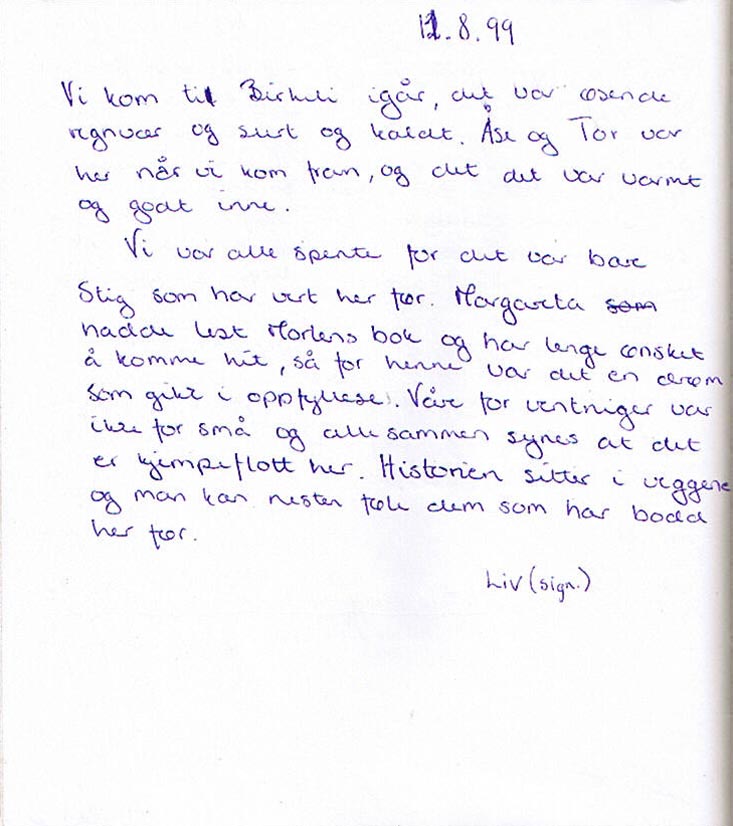 11.8.99
Vi kom til Birkeli igår, det var øsende
regnvær og surt og kaldt. Åse og Tor var
her når vi kom fram, og det det var varmt
og godt inne.
Vi var alle spente for det var bare
Stig som har vert her før. Margareta som
hadde lest Mortens bok og har lenge ønsket
å komme hit, så for henne var det en drøm
som gikk i oppfyllese. Våre for ventniger var
ikke for små og alle sammen synes at det
er kjempeflott her. Historien sitter i veggene
og man kan nesten føle dem som har bodd
her før.
Liv (sign.)